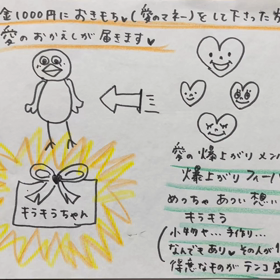 金1000円に おきもち♥(愛のマネー)をして下さった
愛のおかえしが届きます♥
キラキラちゃん
愛の爆上がりメン
爆上がりフィー
めっちゃ あつい 想い
キラキラ
小物や… 手作り…
なんでもあり♥ その人が
得意なものが テンコ